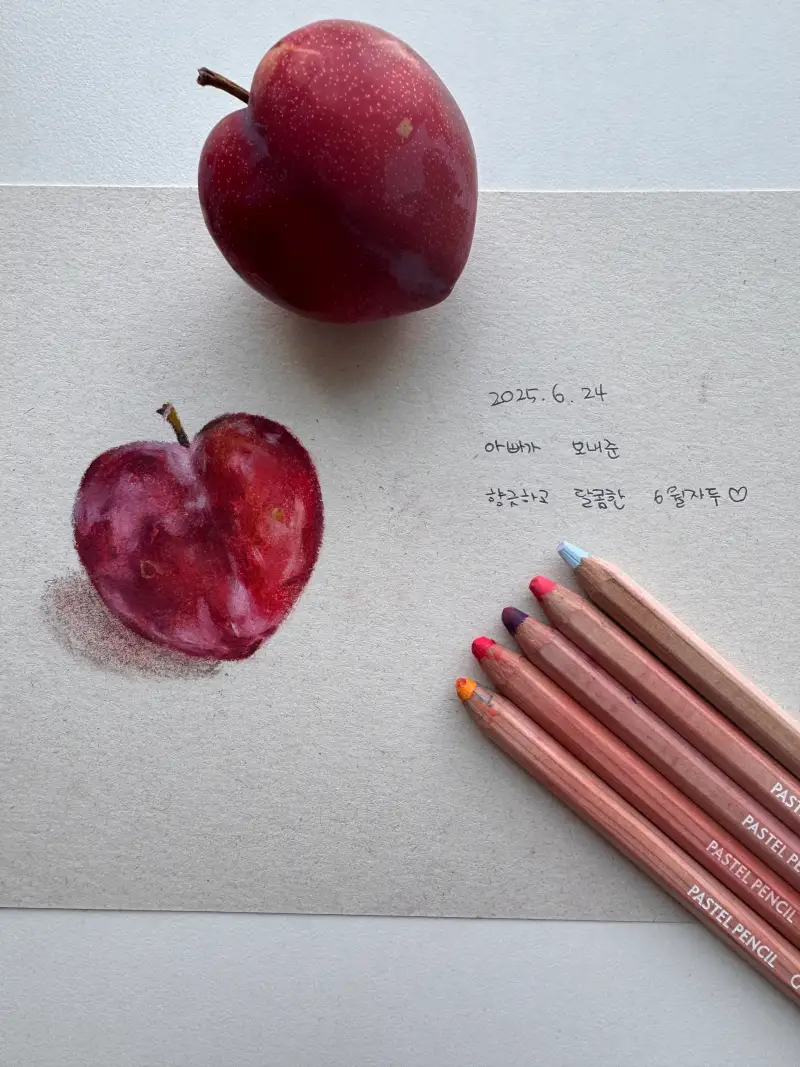 2025.6.24
아빠가 보내준
향긋하고 달콤한 6월자두♡
PAST
PASTEL PE
PASTEL PENCIL
PASTEL PENCIL